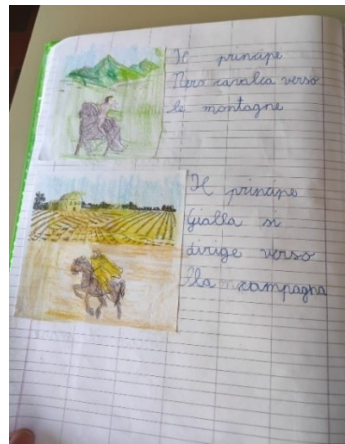 Il principe
Nero cavalca verso
le montagne
Il principe
Gialla si
dirige verso
la campagna